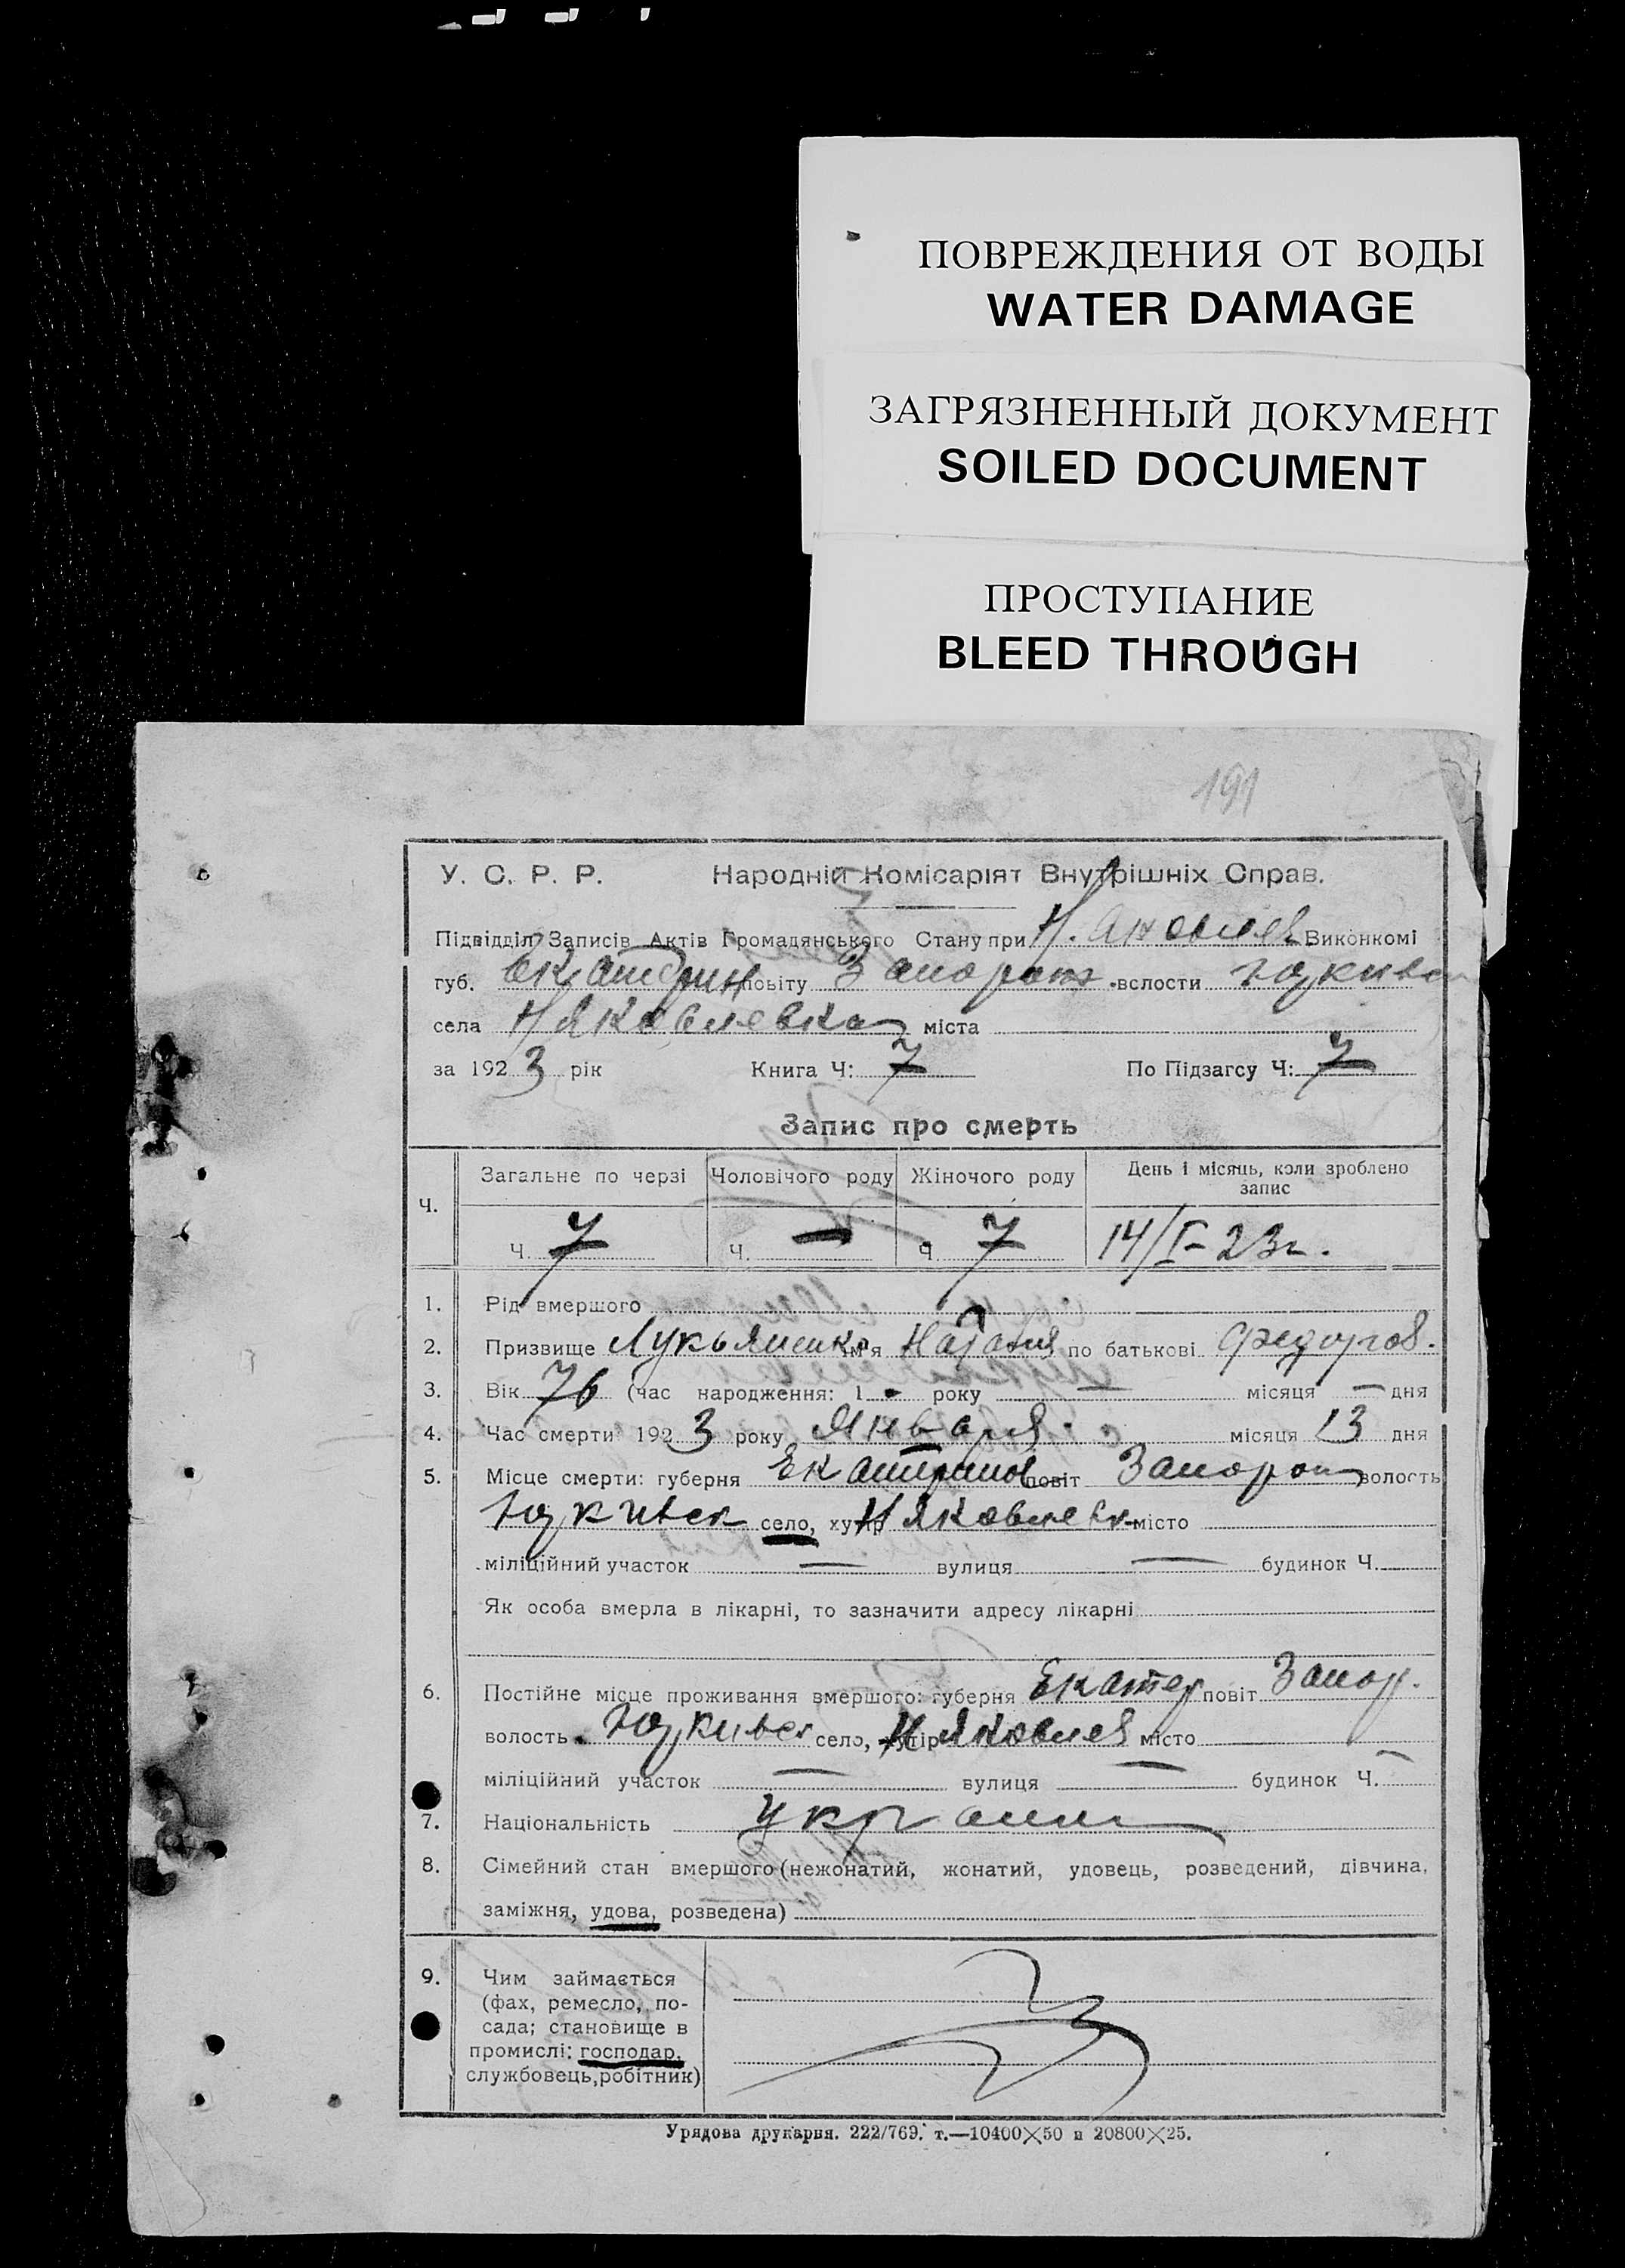 ПОВРЕЖДЕНИЯ ОТ ВОДЫ
WATER DAMAGE
ЗАГРЯЗНЕННЫЙ ДОКУМЕНТ
SOILED DOCUMENT
ПРОСТУПАНИЕ
BLEED THROUGH
191
У. С. Р. Р. Народній Комісаріят Внутрішніх Справ.
Підвідділ Записів Актів Громадянського Стану при Н. Яковлев Виконкомі
губ. Екатерин повіту Запорож волости
села Н Яковлевка міста
за 1923 рік Книга Ч: 7 По Підзагсу Ч: 7
Запис про смерть
Ч. Загальне по черзі Чоловічого роду Жіночого роду День і місяць, коли зроблено запис
Ч. 7 Ч. — Ч. 7 14/I-23г.
1. Рід вмершого
2. Призвище Лукьяненко Ім'я Наталия по батькові Федоров.
3. Вік 76 (час народження: 1 - року — місяця — дня
4. Час смерти 1923 року Января місяця 13 дня
5. Місце смерти: губернія Екатеринов повіт Запорож волость
село, хутір Н Яковлевк місто
міліційний участок — вулиця — будинок Ч.
Як особа вмерла в лікарні, то зазначити адресу лікарні
6. Постійне місце проживання вмершого: губерня Екатер повіт Запор.
волость село, хутір Н Яковлев місто
міліційний участок — вулиця — будинок Ч. —
7. Національність
8. Сімейний стан вмершого (нежонатий, жонатий, удовець, розведений, дівчина,
заміжня, удова, розведена)
9. Чим займається
(фах, ремесло, по-
сада; становище в
промислі: господар,
службовець, робітник)
Урядова друкарня. 222/769. т.—10400×50 и 20800×25.